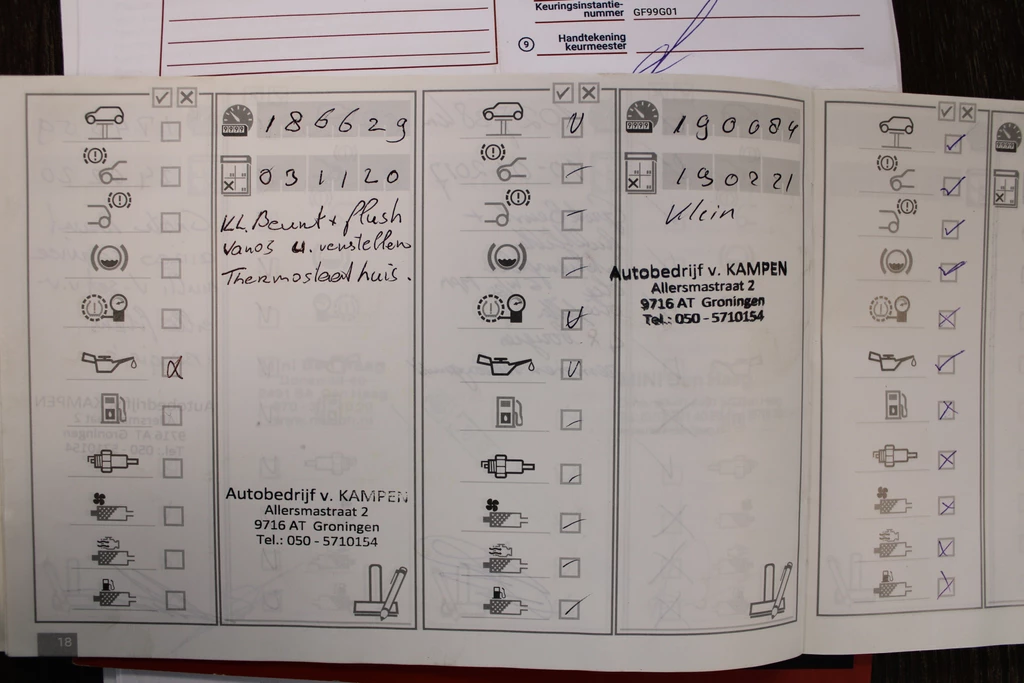 Keuringsinstantie-
nummer GF99G01
9 Handtekening
keurmeester
186629
031120
KL. Beurt + flush
vanos
Autobedrijf v. KAMPEN
Allersmastraat 2
9716 AT Groningen
Tel.: 050 - 5710154
18
190084
190221
Klein
Autobedrijf v. KAMPEN
Allersmastraat 2
9716 AT Groningen
Tel.: 050 - 5710154